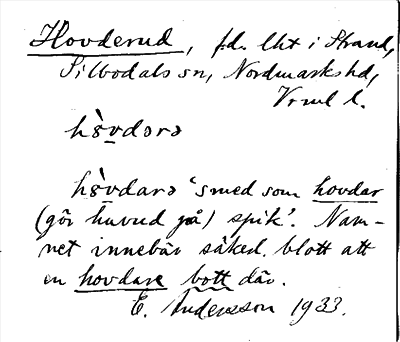 Hovderud, f.d. lht i Strand,
Silbodals sn, Nordmarks hd,
Vrml l.
hò̤vdərə
hò̤vdarə 'smed som hovdar
(gör huvud på) spik'. Nam-
net innebär säkerl. blott att
en hovdare bott där.
E. Andersson 1933.